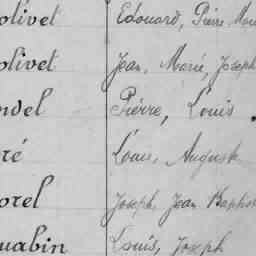 olivet Edouard, Pierre Mar
olivet Jean, Marie, Joseph
ndel Pierre, Louis
ré Louis, Auguste
orel Joseph, Jean Baptis
uabin Louis, Joseph